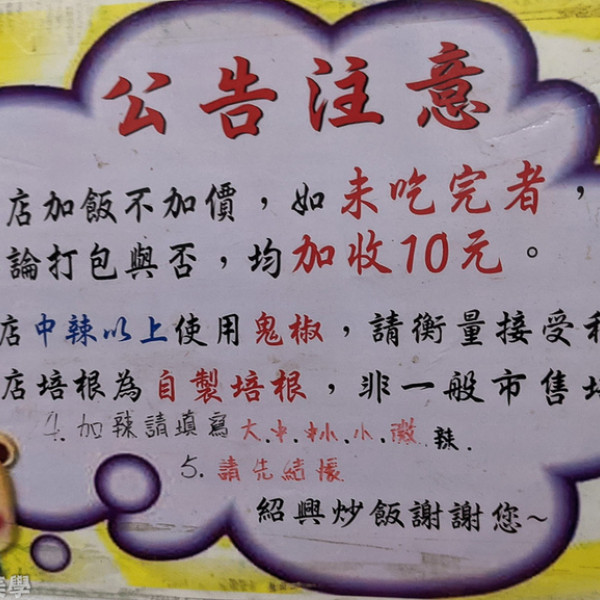 公告注意
店加飯不加價，如未吃完者，
論打包與否，均加收10元。
店中辣以上使用鬼椒，請衡量接受
店培根為自製培根，非一般市售
4.加辣請填寫大.中.小.微辣.
5.請先結帳
紹興炒飯謝謝您~
學